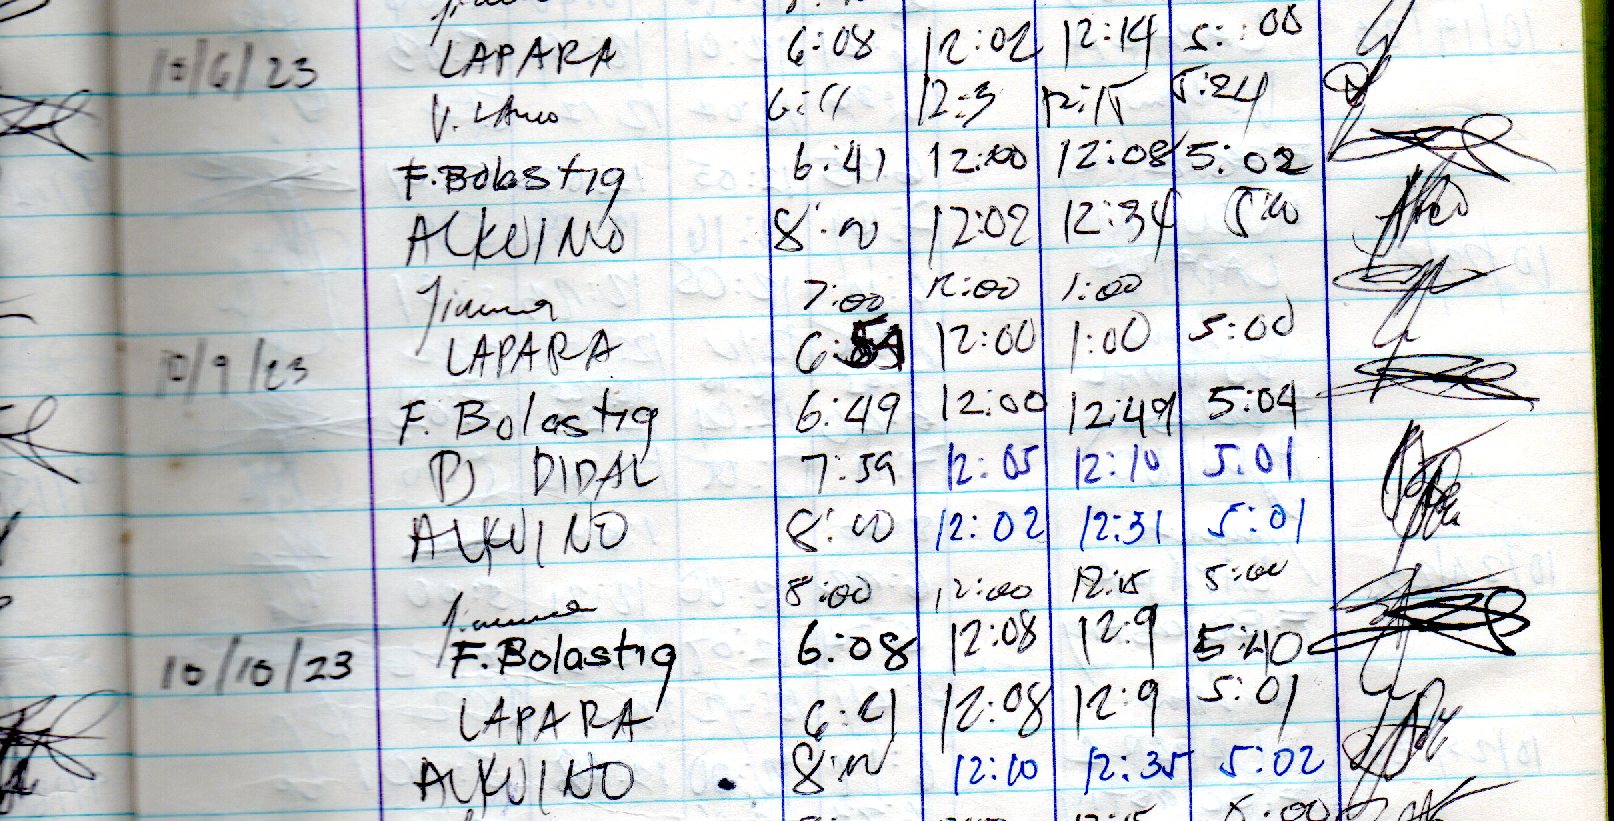 10/6/23 LAPARA 6:08 12:02 12:14 5:00
V. 6:11 12:3 12:15 5:24
F. Bolastig 6:41 12:00 12:08 5:02
ALKUINO 8:00 12:02 12:34 5:00
7:00 12:00 1:00
10/9/23 LAPARA 12:00 1:00 5:00
F. Bolastig 6:49 12:00 12:49 5:04
DIDAL 7:59 12:05 12:10 5:01
ALKUINO 8:00 12:02 12:31 5:01
8:00 12:00 12:15 5:00
10/10/23 F. Bolastig 6:08 12:08 12:9 5:40
LAPARA 12:08 12:9 5:01
ALKUINO 8:00 12:10 12:35 5:02